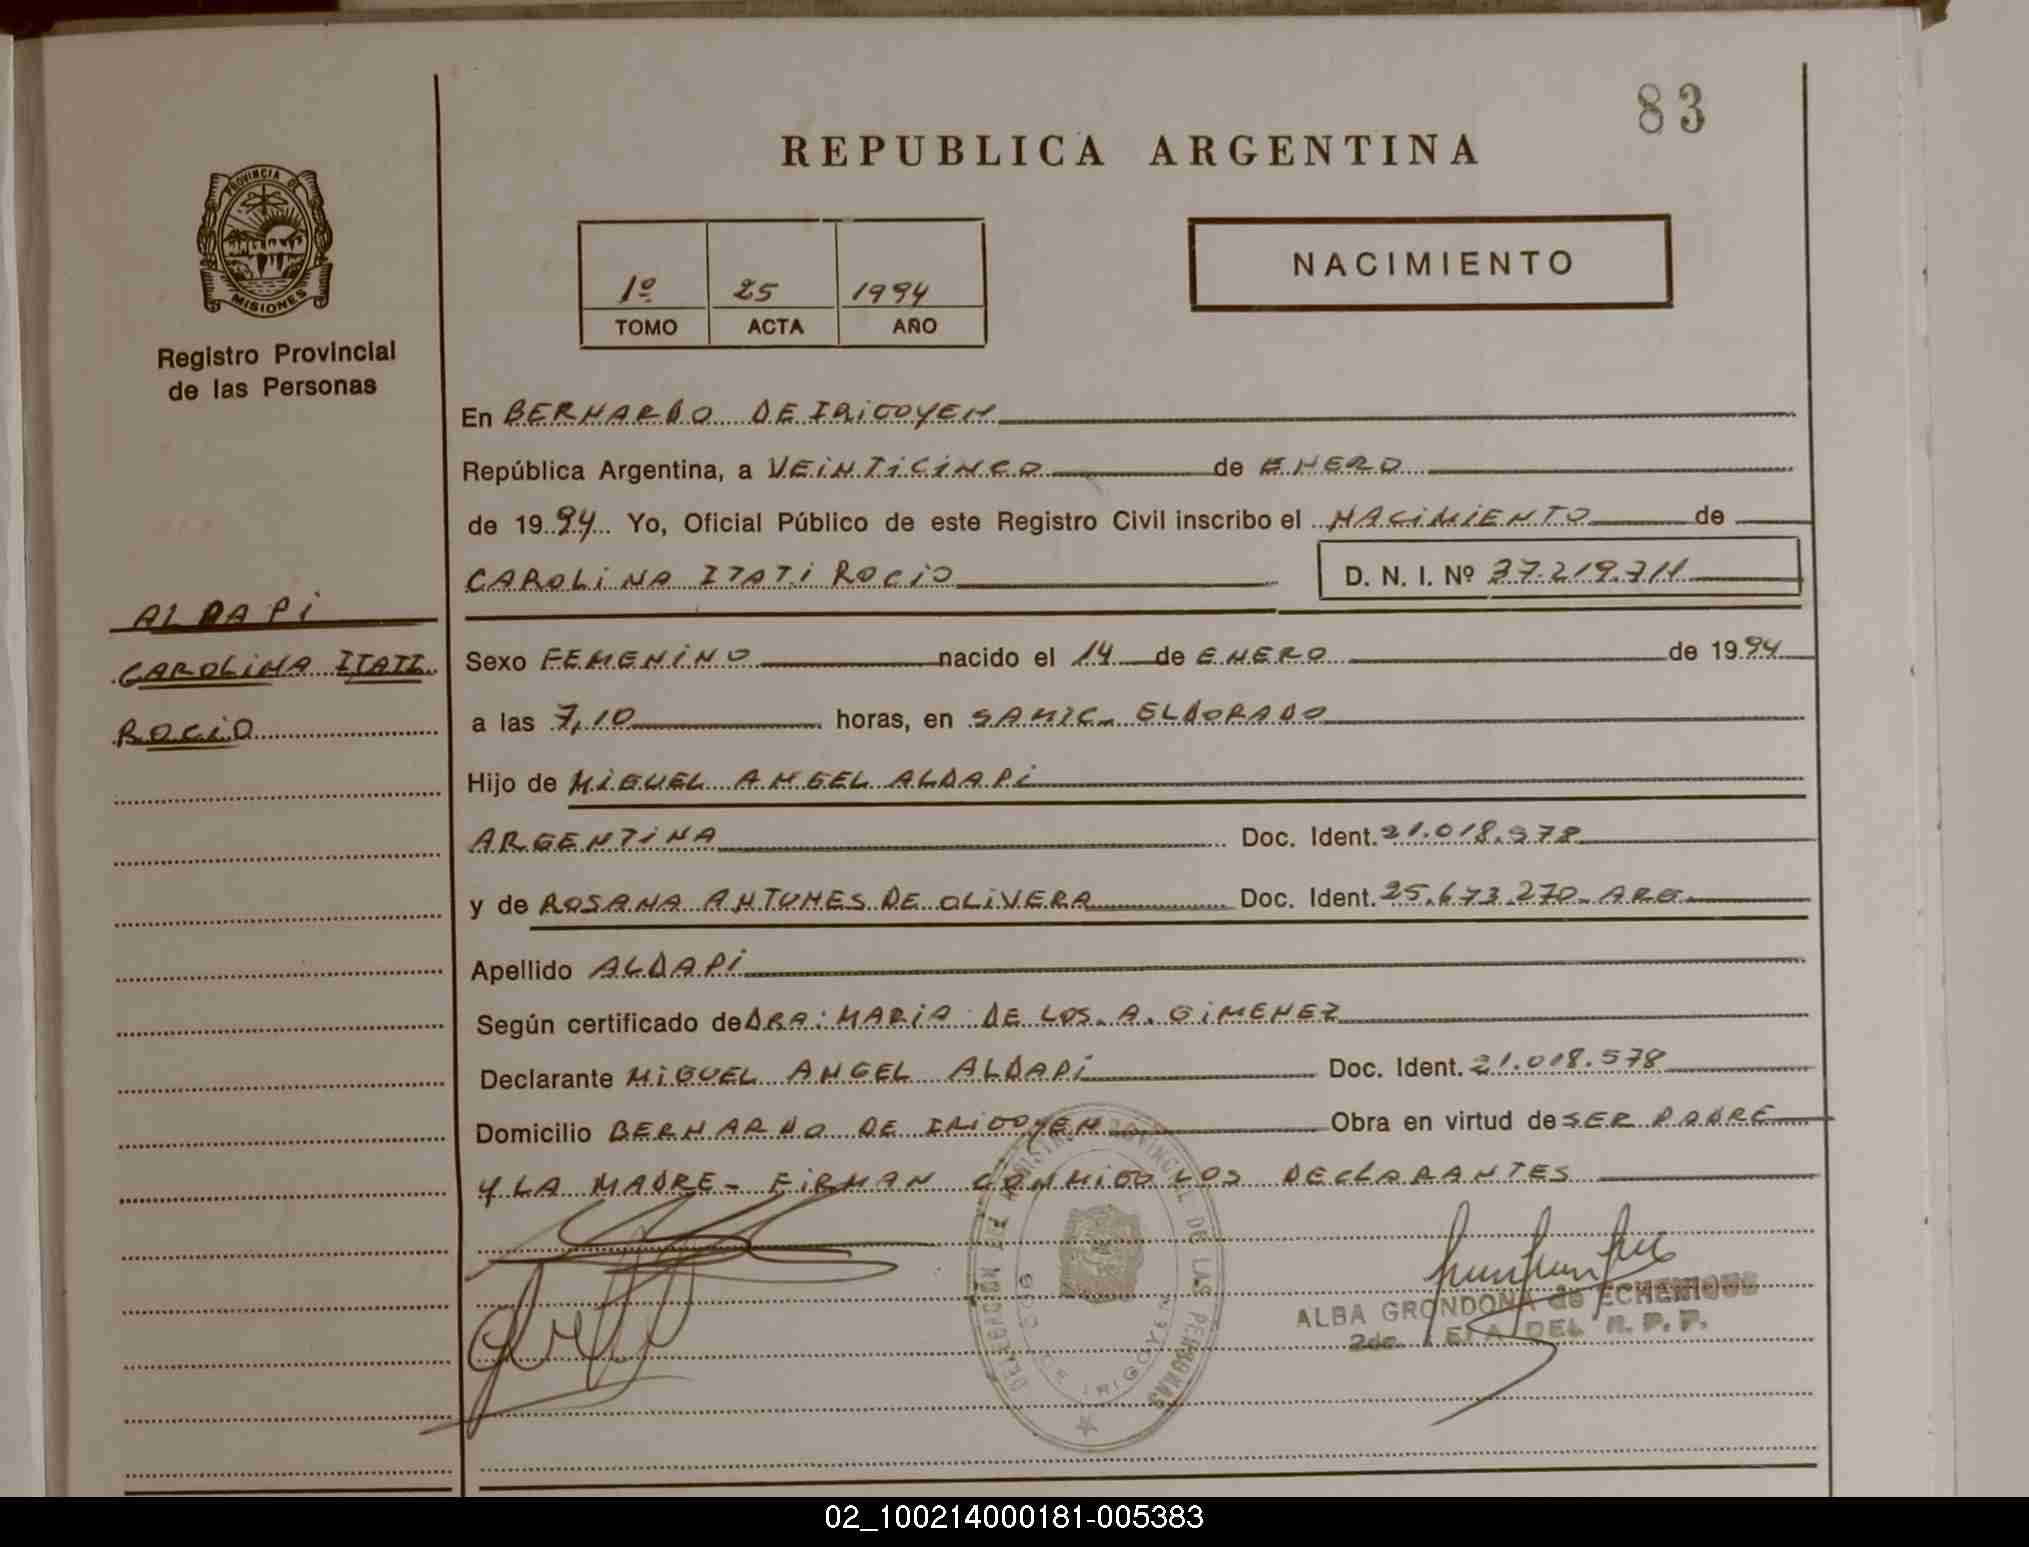 83
REPUBLICA ARGENTINA
PROVINCIA DE
MISIONES
Registro Provincial
de las Personas
1º 25 1994
TOMO ACTA AÑO
NACIMIENTO
En BERNARDO DE IRIGOYEN
República Argentina, a VEINTICINCO de ENERO
de 1994 Yo, Oficial Público de este Registro Civil inscribo el NACIMIENTO de
CAROLINA ITATI ROCIO D. N. I. Nº 37.219.711
ALDAPI
CAROLINA ITATI
ROCIO
Sexo FEMENINO nacido el 14 de ENERO de 1994
a las 7,10 horas, en SAMIC- ELDORADO
Hijo de MIGUEL ANGEL ALDAPI
ARGENTINA Doc. Ident. 21.018.578
y de ROSANA ANTUNES DE OLIVERA Doc. Ident. 25.673.270- ARG
Apellido ALDAPI
Según certificado de DRA: MARIA DE LOS A. GIMENEZ
Declarante MIGUEL ANGEL ALDAPI Doc. Ident. 21.018.578
Domicilio BERNARDO DE IRIGOYEN Obra en virtud de SER PADRE
Y LA MADRE- FIRMAN CONMIGO LOS DECLARANTES
DELEGACION DEL REGISTRO PROVINCIAL DE LAS PERSONAS
DE IRIGOYEN
ALBA GRONDONA de ECHENIQUE
2da. JEFA DEL R. P. P.
02_100214000181-005383